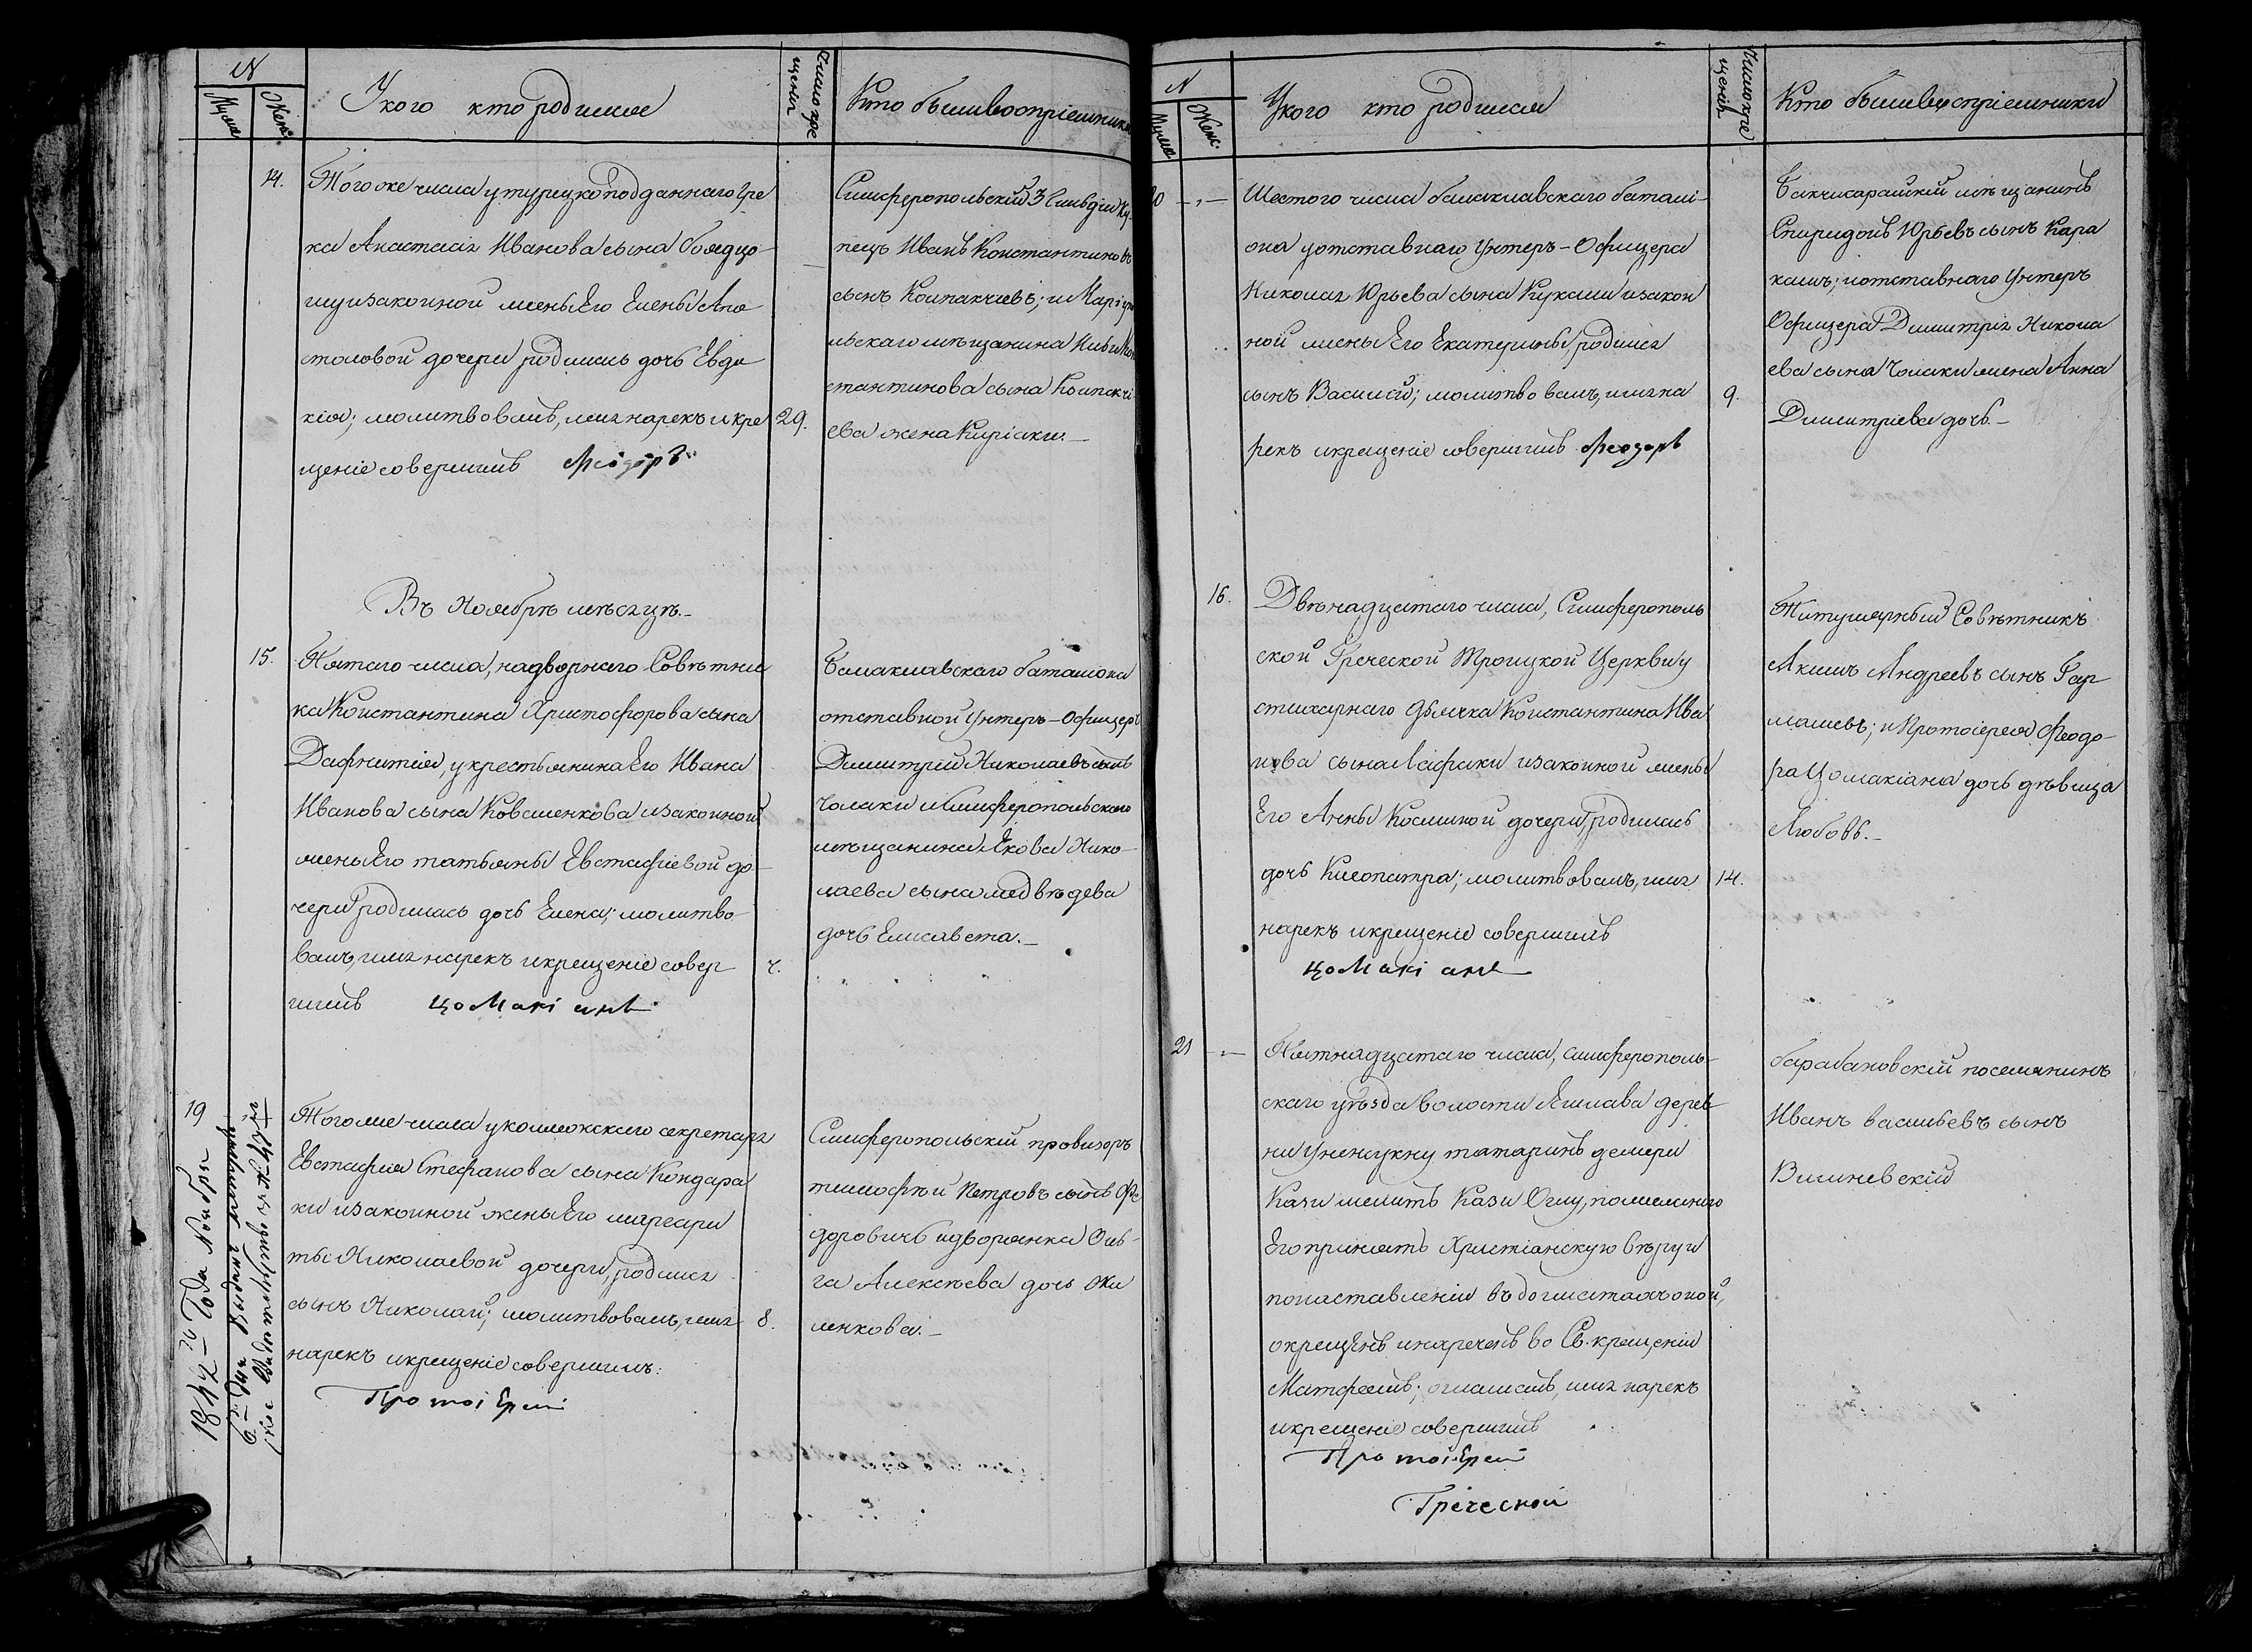 N
Муж.
Жен.
У кого кто родился
Число кре
щенія
Кто были воспріемники
14.
Того же числа у турецкоподданнаго Гре
ка Анастасія Иванова сына
и законной жены Его Елены Апо
столовой дочери родилась дочь Евдо
кія; молитвовалъ, имя нарекъ и кре
щеніе совершилъ Феодоръ
29.
Симферопольскій 3 Гильдіи Ку
пецъ Иванъ Константиновъ
сынъ; и Маріупо
льскаго мѣщанина Кон
стантинова сына
ева жена Киріаки.
Въ Ноябрѣ мѣсяцѣ.
15.
Пятаго числа, надворнаго Совѣтни
ка Константина Христофорова сына
у крестьянина Его Ивана
Иванова сына Коваленкова и законной
жены Его татьяны Евстафіевой до
чери родилась дочь Елена; молитво
валъ, имя нарекъ и крещеніе совер
шилъ Цомакіанъ
Балаклавскаго баталіона
отставной Унтеръ-Офицеръ
Димитрій Николаевъ сынъ
Чолаки и Симферопольскаго
мѣщанина Якова Нико
лаева сына медвѣдева
дочь Елисавета.
19
Того же числа у коллежскаго секретаря
Евстафія Стефанова сына Кондара
ки и законной жены Его маргари
ты Николаевой дочери, родился
сынъ Николай; молитвовалъ, имя
нарекъ и крещеніе совершилъ:
Протоіерей
8.
Симферопольскій провизоръ
тимофѣй Петровъ сынъ Фе
доровичъ и дворянка Оль
га Алексѣева дочь
1842 Года Ноября
6 дня Выдано метриче
ское Свидѣтельство
N
Муж.
Жен.
У кого кто родился
Число кре
щенія
Кто были воспріемники
20
Шестого числа балаклавскаго батали
она у отставнаго Унтеръ-Офицера
Николая Юрьева сына и закон
ной жены Его Екатерины, родился
сынъ Василій; молитвовалъ, имя на
рекъ и крещеніе совершилъ Феодоръ
9.
Бахчисарайкій мѣщанинъ
Спиридонъ Юрьевъ сынъ Кара
кашъ; и отставнаго Унтеръ
Офицера Димитрія Никола
ева сына Чолаки жена Анна
Димитріева дочь.
16.
Двѣнадцатаго числа, Симферополь
ской Греческой Троицкой Церкви у
стихарнаго Дьячка Константина Ива
нова сына и законной жены
Его Анны Косминой дочери, родилась
дочь Клеопатра; молитвовалъ, имя
нарекъ и крещеніе совершилъ
Цомакіанъ
14.
Титулярный Совѣтникъ
Акимъ Андреевъ сынъ
и Протоіерея Феодо
ра Цомакіана дочь дѣвица
Любовь.
21
Пятнадцатаго числа, симферополь
скаго уѣзда волости Яшлава дерев
ни татаринъ
Кази Оглу, по желанію
Его принять Христіанскую вѣру и
по наставленіи въ догматахъ оной,
окрещенъ и нареченъ во Св. крещеніи
Матфеемъ; огласилъ, имя нарекъ
и крещеніе совершилъ
Протоіерей
Греческой
барабановскій поселянинъ
Иванъ васильевъ сынъ
Вишневскій